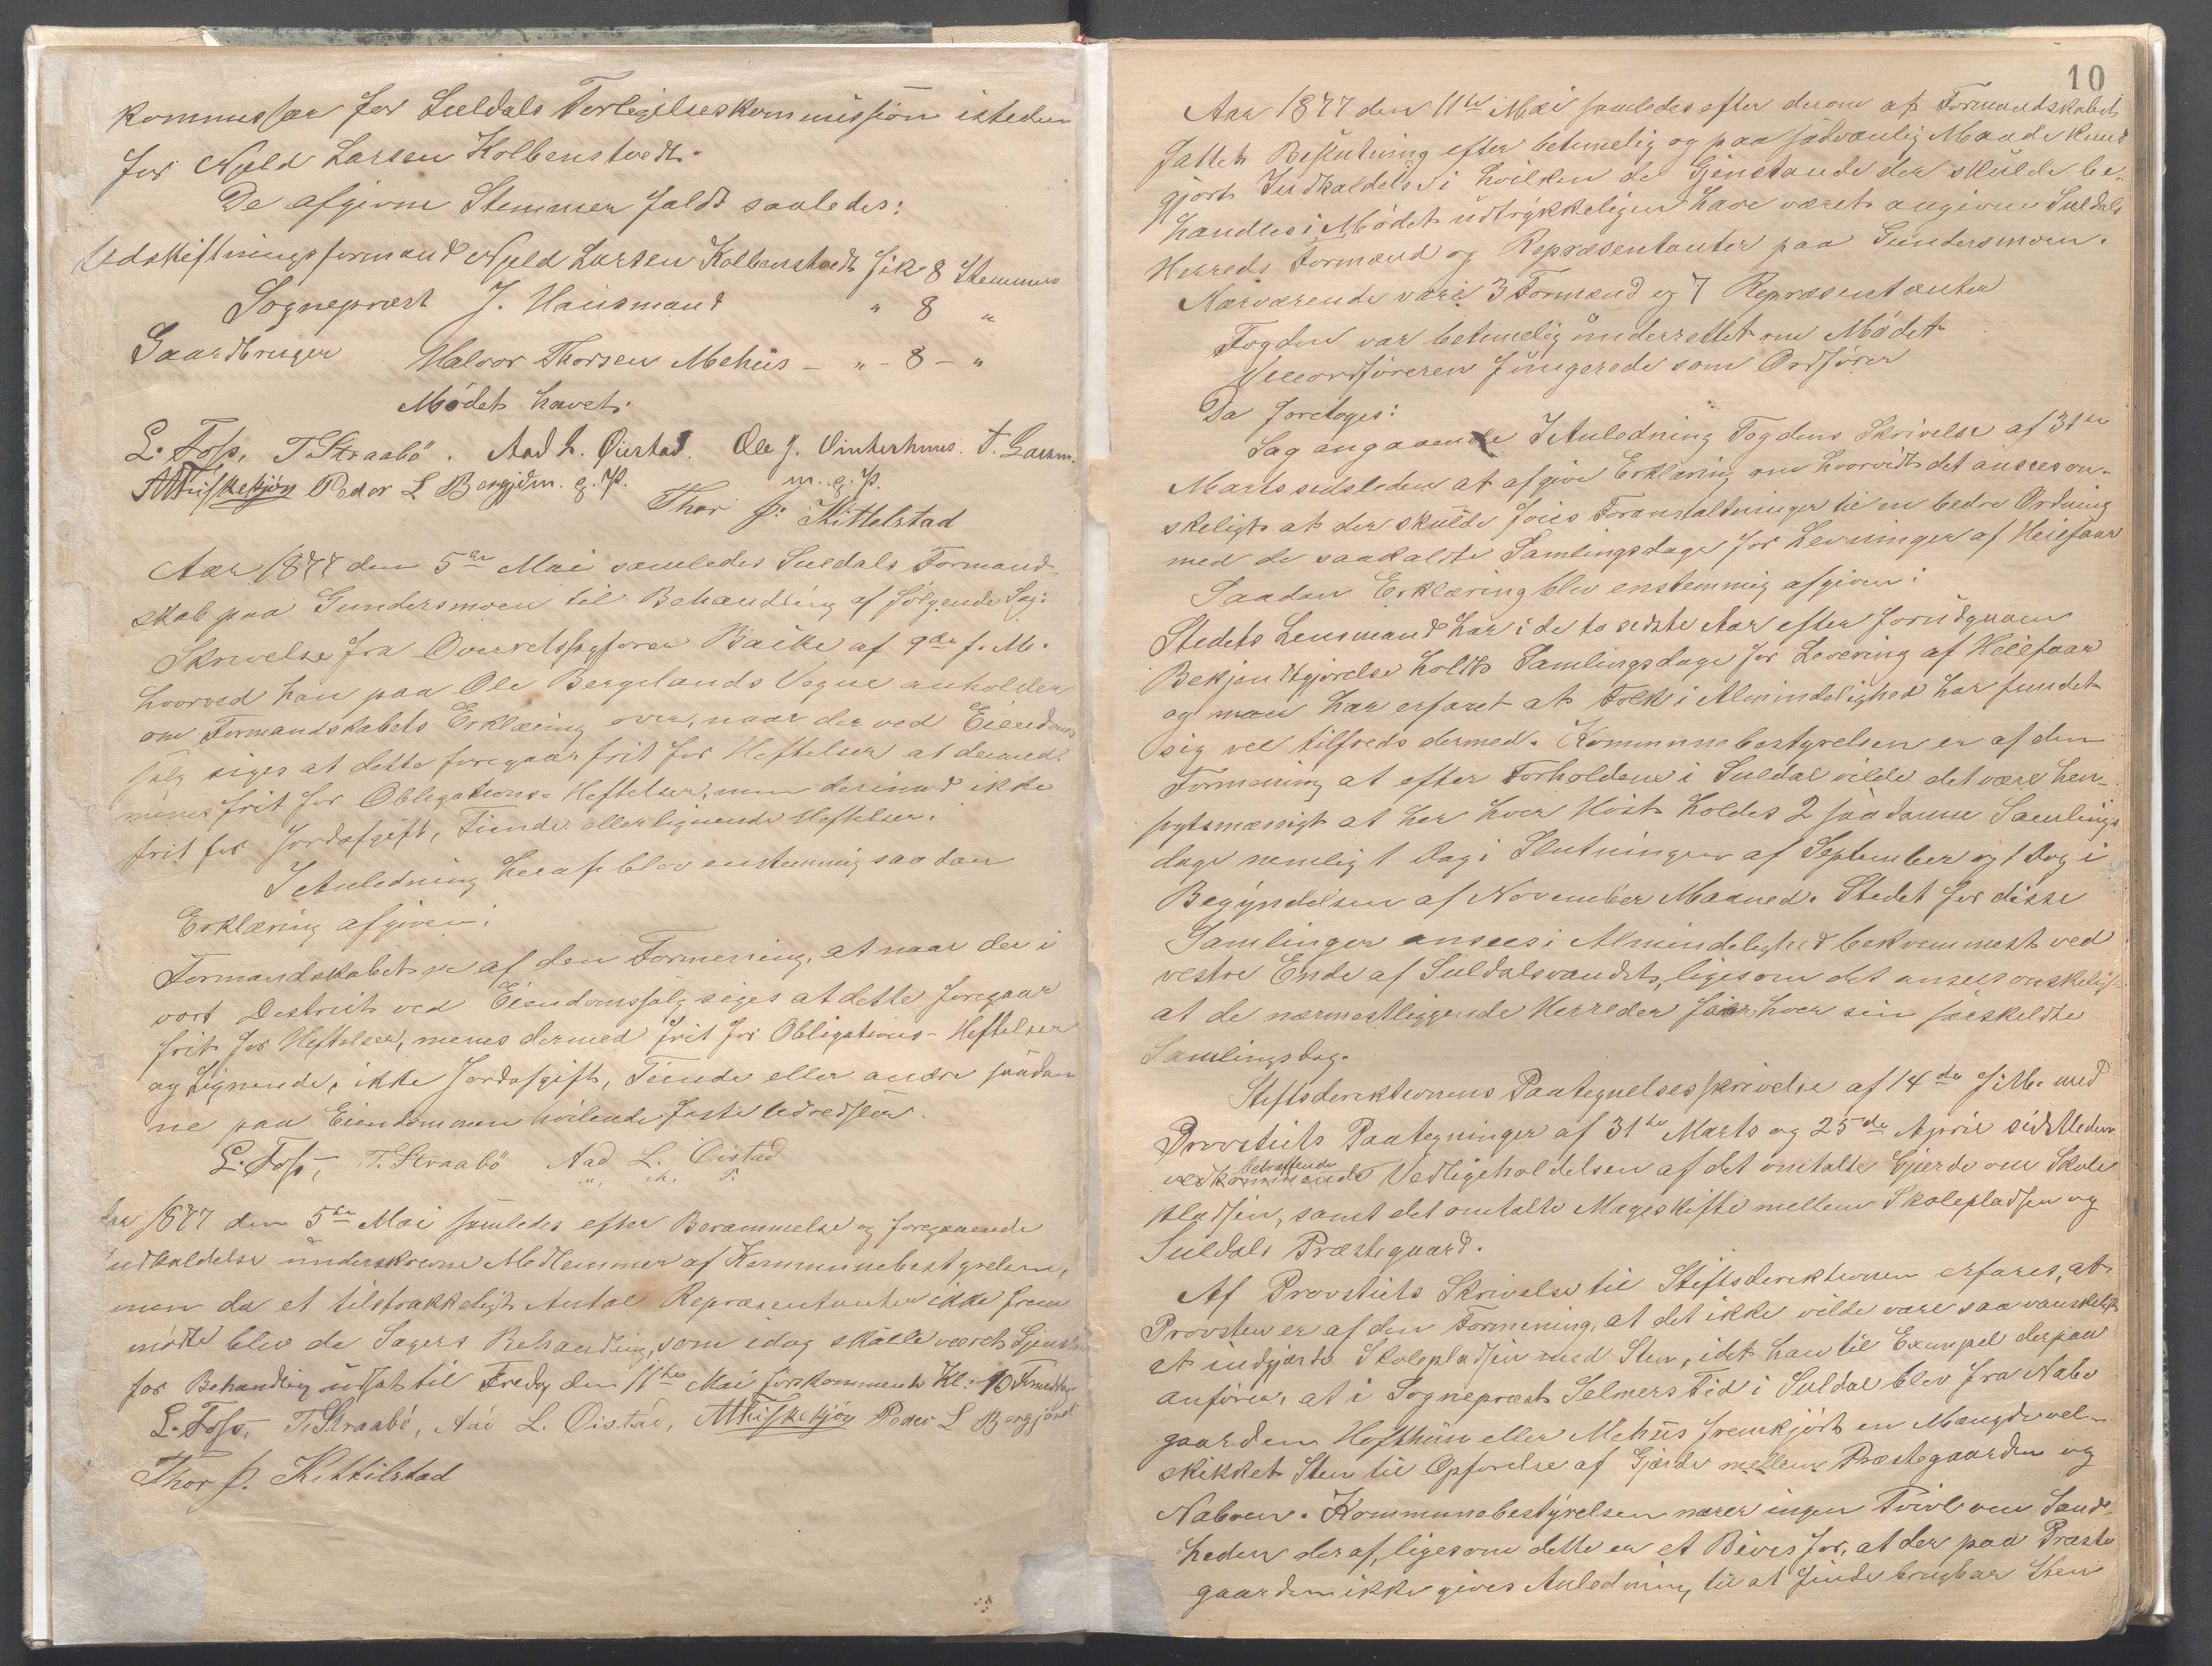 kommissær for Suldals Forligelseskommission isteden
for Njeld Larsen Kolbenstvedt.
De afgivne Stemmer faldt saaledes:
Udskiftningsformand Njeld Larsen Kolbenstvedt fik 8 Stemmer
Sogneprest J. Hausmand " 8 "
Gaardbruger Halvor Thorsen Mehus - " - 8 - "
Mødet hævet.
L. Foss, T. Straabö. Aad L. Øistad. Ole J. Vinterhuus. T. Garm.
Peder L Bergjdm. g. P. m. g. P.
Thor P: Kittelstad
Aar 1877 den 5te Mai samledes Suldals Formand-
skab paa Gundersmoen til Behandling af følgende Sag:
Skrivelse fra Overretssagfører Bache af 9de f. M.
hvorved han paa Ole Bergelands Vegne anholder
om Formandskabets Erklæring over, naar der ved Eiendoms
salg siges at dette foregaar frit for Heftelser at dermed
menes frit for Obligations-Heftelser, men derimod ikke
frit for Jordafgift, Tiende eller lignende Heftelser.
I Anledning heraf blev enstemmig saadan
Erklæring afgiven:
Formandskabet er af den Formening, at naar der i
vort Destrict ved Eiendomssalg siges at dette foregaar
frit for Heftelser, menes dermed frit for Obligations-Heftelser
og Lignende, ikke Jordafgift, Tiende eller andre saadan
ne paa Eiendommen hvilende faste Udredsler.
L. Foss, T. Straabö Aad L. Oistad
m. P.
Aar 1877 den 5te Mai samledes efter Berammelse og foregaaende
Indkaldelse underskrevne Medlemmer af Kommunebestyrelsen,
men da et tilstrækkeligt Antal Repræsentanter ikke frem
mødte blev de Sagers Behandling, som idag skulle været Gjenstand
for Behandling udsat til Fredag den 11te Mai førstkommende Kl. 10 Formiddag
L. Foss, T. Straabö, Aad L. Oistad, Peder L Bergjord
Thor P. Kittilstad
10
Aar 1877 den 11te Mai samledes efter derom af Formandskabet
fattet Beslutning efter betimelig og paa sædvanlig Maade kund
gjort Indkaldelse i hvilken de Gjenstande der skulde be-
handles i Mødet udtrykkeligen have været angivne Suldals
Herreds Formænd og Repræsentanter paa Gundersmoen.
Nærværende vare 3 Formænd og 7 Repræsentanter
Fogden var betimelig underrettet om Mødet
Viceordføreren fungerede som Ordfører
Da foretoges:
Sag angaaende I Anledning Fogdens Skrivelse af 31te
Marts sidstleden at afgive Erklæring om hvorvidt det ansees øn-
skeligt at der skulde føies Foranstaltninger til en bedre Ordning
med de saakaldte Samlingsdage for Levninger af Heiefaar
Saadan Erklæring blev enstemmig afgiven:
Stedets Lensmand har i de to sidste Aar efter forudgaaen
Bekjendtgjørelse holdt Samlingsdage for Levering af Heiefaar
og man har erfaret at Folk i Almindelighed har fundet
sig vel tilfreds dermed. Kommunebestyrelsen er af den
Formening at efter Forholdene i Suldal vilde det være hen-
sigtsmæssigt at her hver Høst holdes 2 saadanne Samlings
dage nemlig 1 Dag i Slutningen af September og 1 Dag i
Begyndelsen af November Maaned. Stedet for disse
Samlinger ansees i Almindelighed bekvemmest ved
vestre Ende af Suldalsvandet, ligesom det ansees ønskeligt
at de nærmestliggende Herreder faar hver sin særskildte
Samlingsdag.
Stiftsdirektionens Paategnelsesskrivelse af 14de f. M. med
Provstiets Paategninger af 31te Marts og 25de April sidstleden
vedkommende betræffende Vedligeholdelsen af det omtalte Gjerde om Skole
pladsen, samt det omtalte Mageskifte mellem Skolepladsen og
Suldals Præstegaard.
Af Provstiets Skrivelse til Stiftsdirektionen erfares, at
Provsten er af den Formening, at det ikke vilde være saa vanskeligt
at indgjærde Skolepladsen med Sten, idet han til Exempel derpaa
anfører, at i Sogneprest Selmers Tid i Suldal blev fra Nabo
gaarden Hofthun eller Mehus fremkjørt en Mængde vel-
skikket Sten til Opførelse af Gjærde mellem Præstegaarden og
Naboen. Kommunebestyrelsen nærer ingen Tvivl om Sand-
heden deraf, ligesom dette er et Bevis for, at der paa Præste
gaarden ikke gives Anledning til at finde brugbar Sten